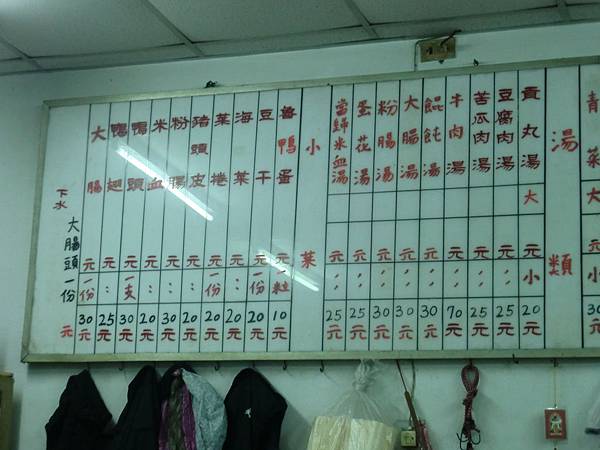 青菜 30元
湯類
貢丸湯 大 元 小 20元
豆腐肉湯 元 : 25元
苦瓜肉湯 元 : 25元
牛肉湯 元 : 70元
餛飩湯 元 : 30元
大腸湯 元 : 30元
粉腸湯 元 : 30元
蛋花湯 元 : 25元
當歸米血湯 元 : 25元
小菜
魯鴨蛋 元 一粒 10元
豆干 元 一份 20元
海菜 元 : 20元
菜捲 元 一份 20元
豬頭皮 元 : 20元
粉腸 元 : 30元
米血 元 : 20元
鴨頭 元 一支 30元
鴨翅 元 : 25元
大腸 元 一份 30元
大腸頭一份
下水 元